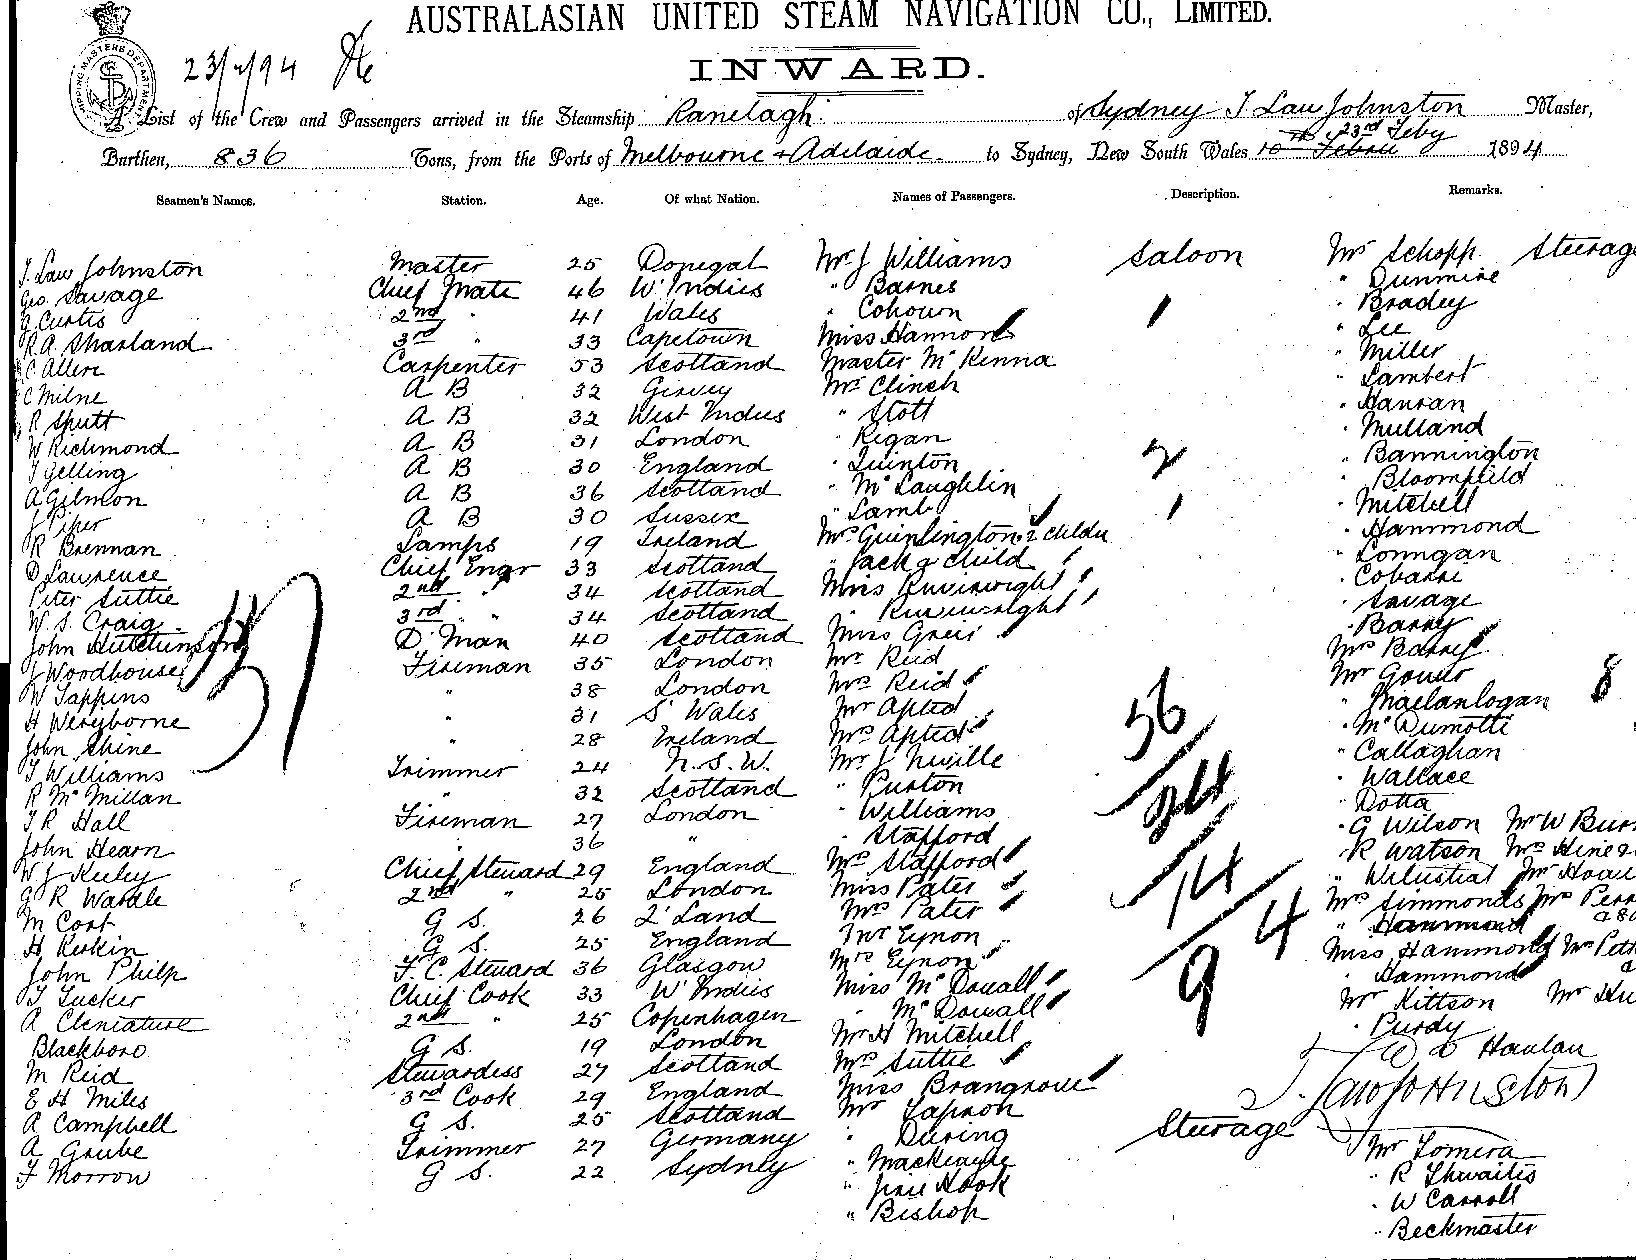 AUSTRALASIAN UNITED STEAM NAVIGATION CO., LIMITED.
23/2/94
INWARD.
A List of the Crew and Passengers arrived in the Steamship Ranelagh of Sydney J Law Johnston Master,
Burthen, 836 Tons, from the Ports of Melbourne + Adelaide to Sydney, New South Wales 23rd Feby 1894
Seamen's Names. Station. Age. Of what Nation. Names of Passengers. Description. Remarks.
J. Law Johnston Master 25 Donegal Mr J Williams Saloon Mr Schopp Steerage
Geo. Savage Chief Mate 46 W. Indies " Barnes " Dunmire
G Curtis 2nd " 41 Wales " Cohown 1 " Bradey
R.A. Sharland 3rd " 33 Capetown Miss Hannon " Lee
C Allen Carpenter 53 Scotland Master McKenna " Miller
C Milne A B 32 Mr Clinch " Lambert
R Sputt A B 32 West Indies " Stott " Hanran
W Richmond A B 31 London " Regan " Mulland
J Gelling A B 30 England " Quinton 2 " Bannington
A Gilmon A B 36 Scotland " McLaughlin " Bloomfield
J Piper A B 30 Sussex " Lamb 1 " Mitchell
R Brennan Lamps 19 Ireland Mrs Quinlington 2 childn " Hammond
D Lawrence Chief Engr 33 Scotland " Jack & child " Lonngan
Peter Suttie 2nd " 34 Scotland Miss " Cobassi
W. S. Craig 3rd " 34 Scotland " " Savage
John Hutchinson D. Man 40 Scotland Miss Greir " Barry
J Woodhouse Fireman 35 London Mr Reid Mrs Barry
W Tappins " 38 London Mrs Reid Mr Gower
H Weryborne " 31 S. Wales Mr Apted " 8
John Shine " 28 Ireland Mrs Apted 56 " McDumotti
J Williams Trimmer 24 N.S.W. Mr J Neville " Callaghan
R McMillan " 32 Scotland " Purton 24 " Wallace
J R Hall Fireman 27 London " Williams " Dotta
John Hearn " 36 " " Stafford " G Wilson Mr W
W J Keeley Chief Steward 29 England Mrs Stafford " R Watson Mrs Hine
G R Wardle 2nd " 25 London Miss Pater 14 " Mr
M Cort G S. 26 Z'Land Mrs Pater Mrs Simmonds Mrs
H Reskin G S. 25 England Mr Eynon 4 " Hammond
John Philp F. C. Steward 36 Glasgow Mrs Eynon Miss Hammond Mr
J Tucker Chief Cook 33 W. Indies Miss McDowall 9 " Hammond
A Cleniature 2nd " 25 Copenhagen " McDowall Mr Kittson Mr
Blackboro G S. 19 London Mr H Mitchell " Purdy
M Reid Stewardess 27 Scotland Mrs Suttie Hanlan
E H Miles 3rd Cook 29 England Miss Brangrove J. Law Johnston
A Campbell G S. 25 Scotland Mr Tapson
A Grube Trimmer 27 Germany " During Steerage Mr Tomera
F Morrow G S. 22 Sydney " Mackenzie " R Thwaites
" Hook " W Carroll
" Bishop " Beckmaster
37